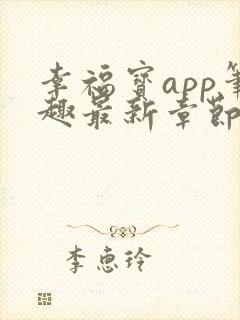 幸福宝app笔
趣最新章节
李惠玲